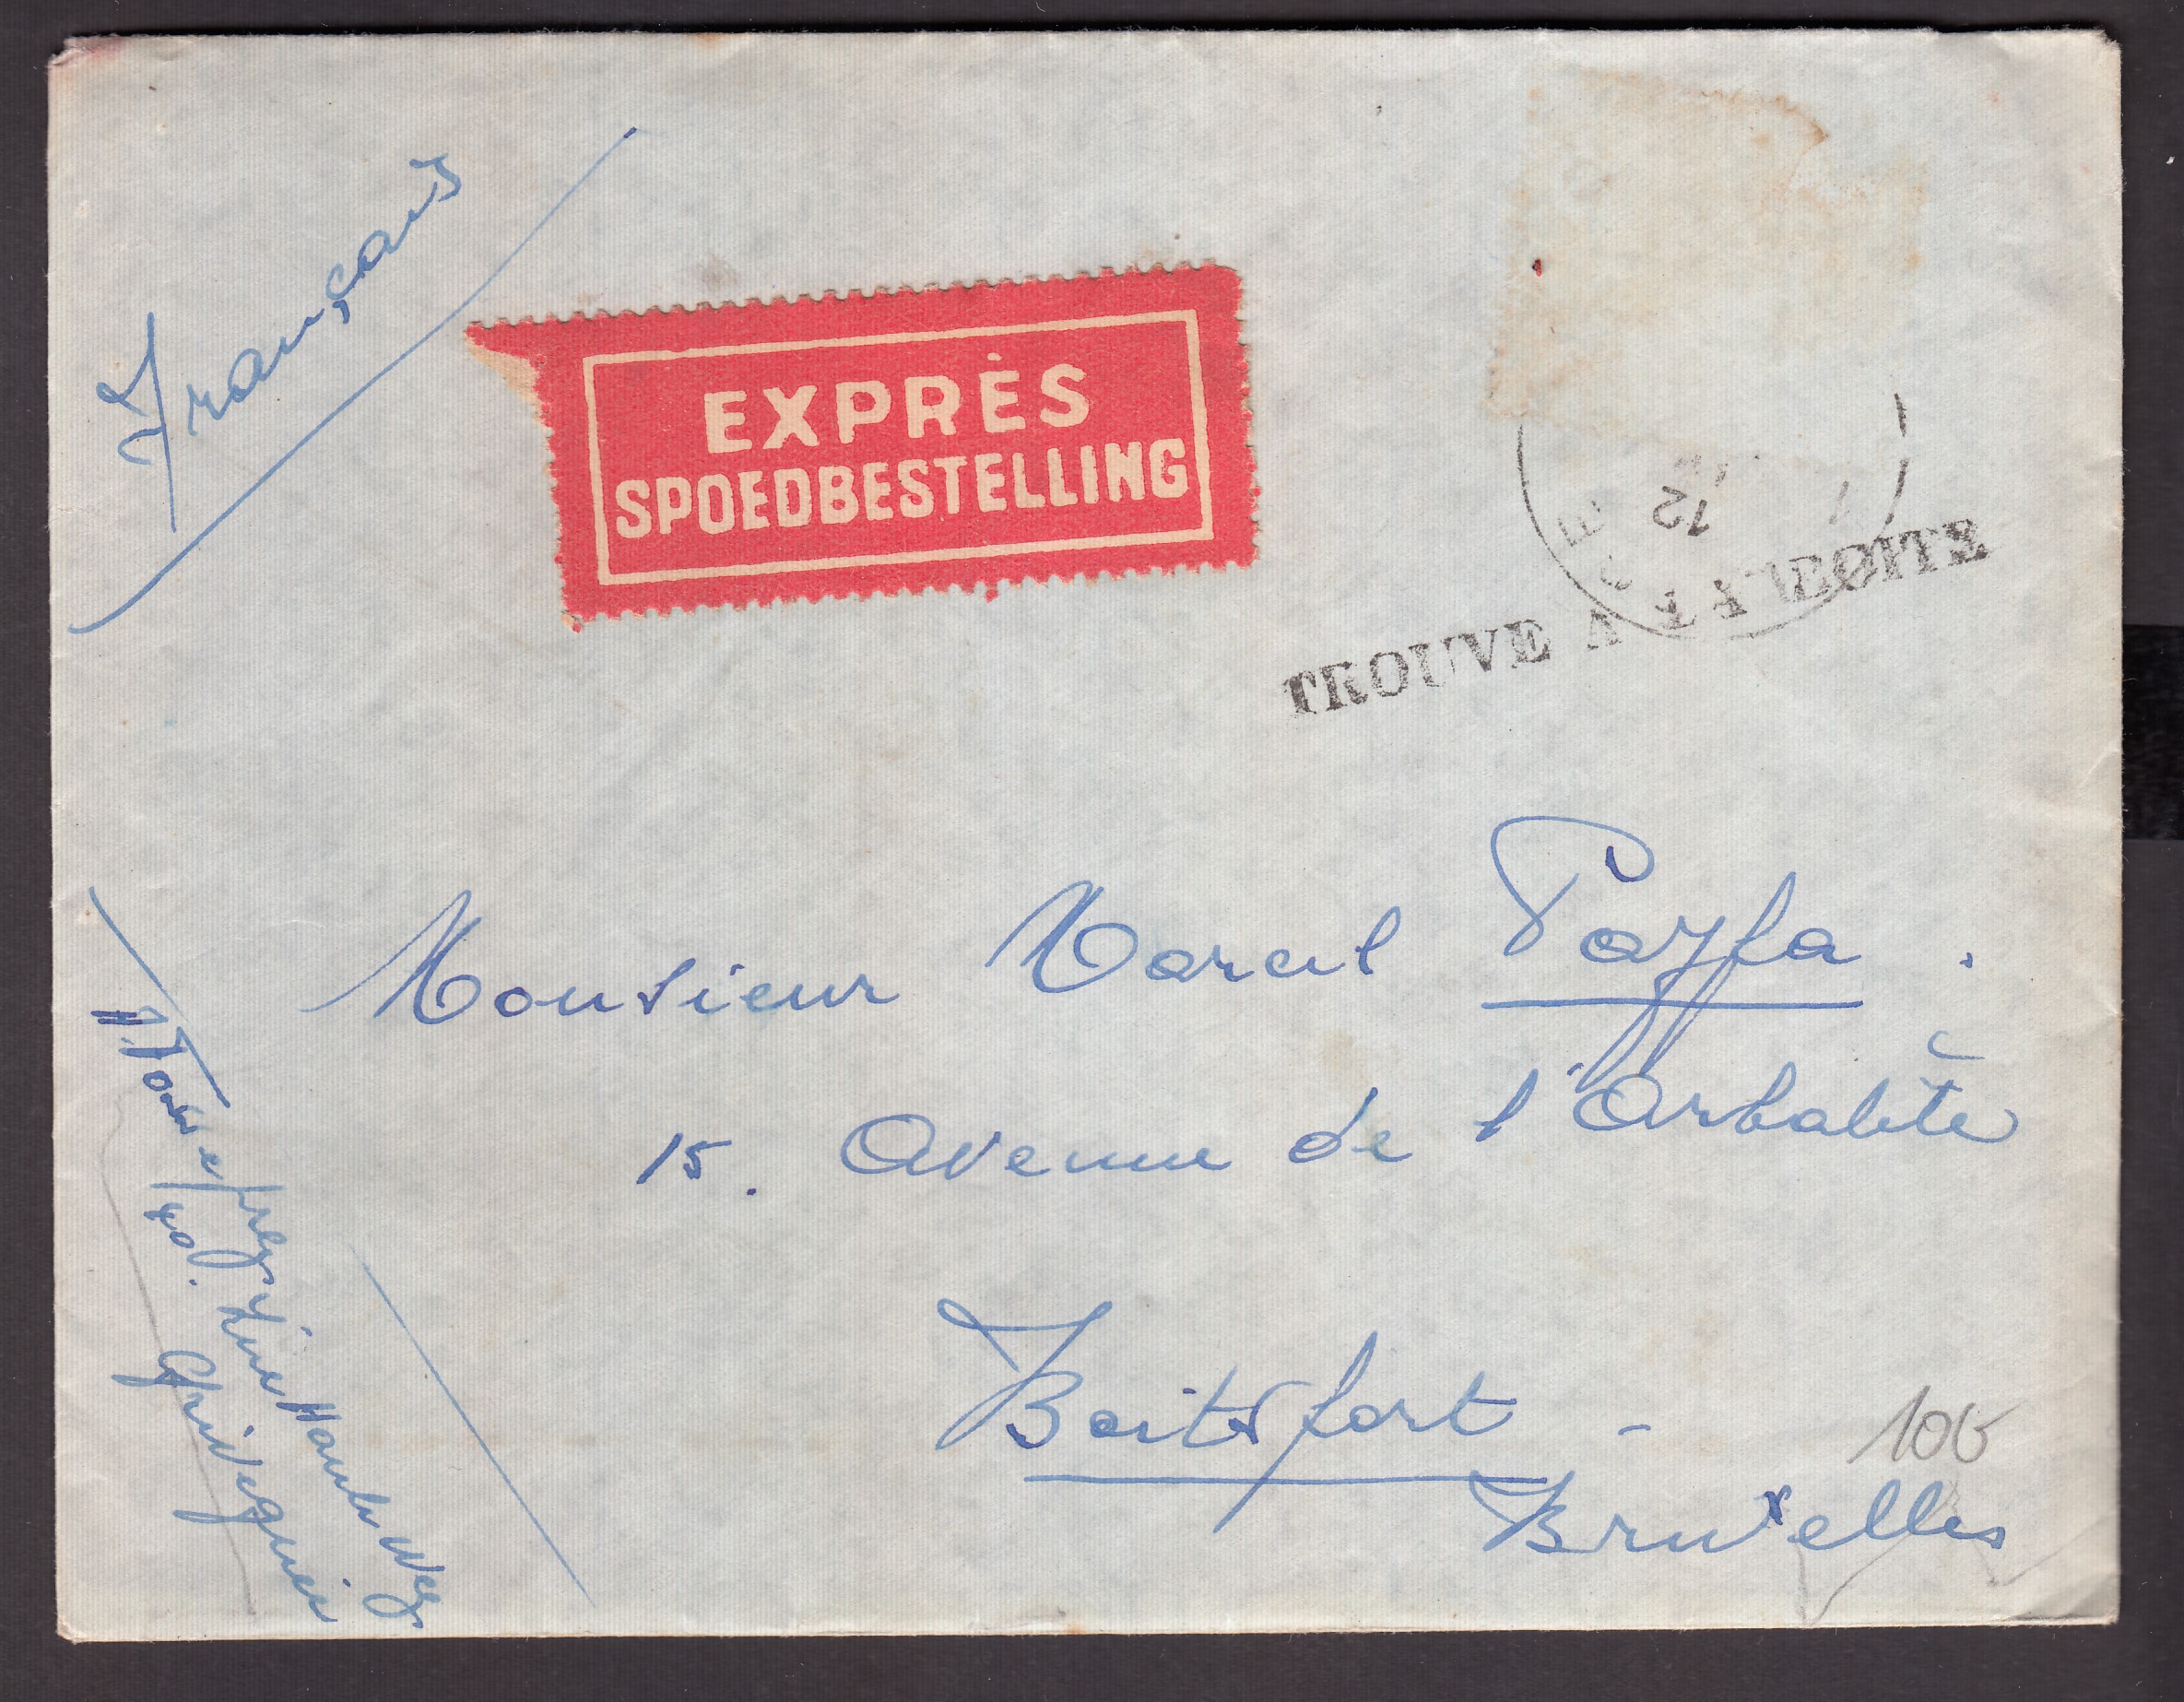 Français
EXPRÈS
SPOEDBESTELLING
12
TROUVE A LA BOITE
Monsieur Marcel Payfa.
15. Avenue de l'Arbalète
Boitsfort -
Bruxelles
100
40.
Grivegnée